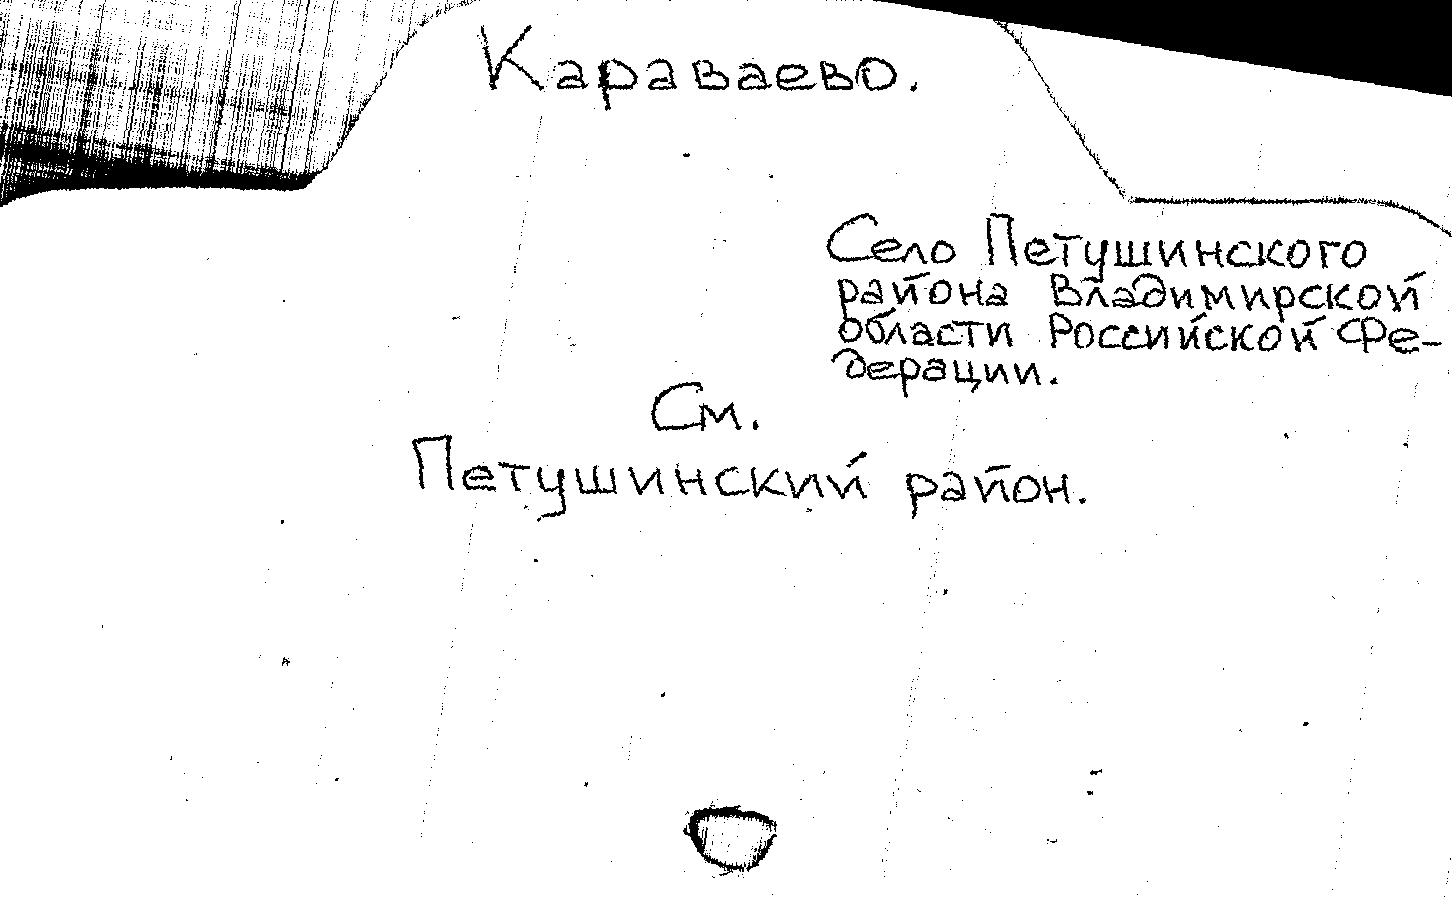 Караваево.
Село Петушинского
района Владимирской
области Российской Фе-
дерации.
См.
Петушинский район.